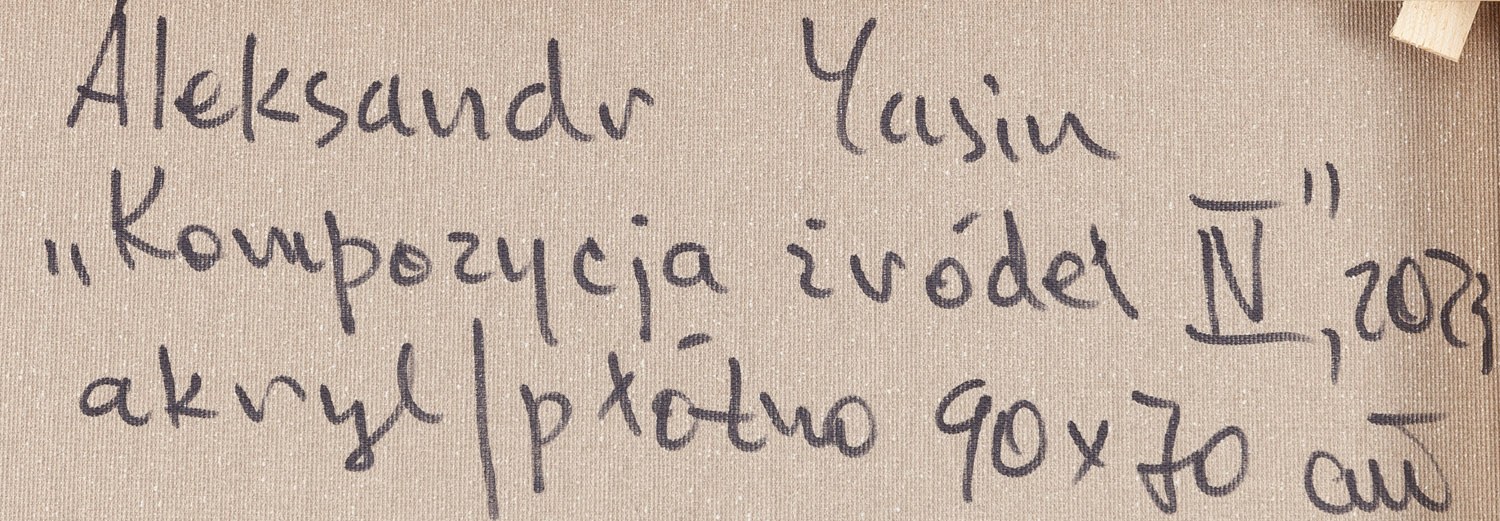 Aleksandr Yasin
„Kompozycja źródeł IV", 2023
akryl/płótno 90x70